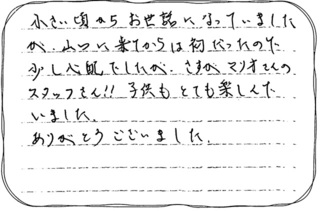 小さい頃からお世話になっていました
が、山口に来てからは初だったので
少し心配でしたが、さすがマリオさんの
スタッフさん!! 子供もとても楽しんで
いました。
ありがとうございました。